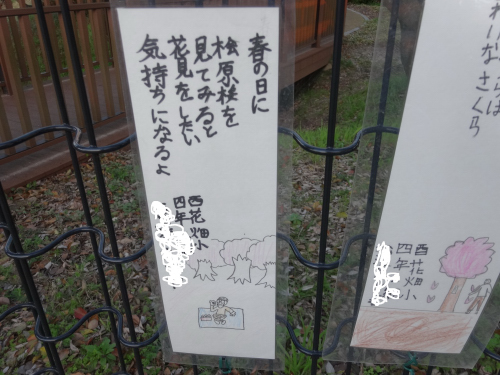 春の日に
桧原桜を
見てみると
花見をしたい
気持ちになるよ
西花畑小
四年
さくら
西花畑小
四年